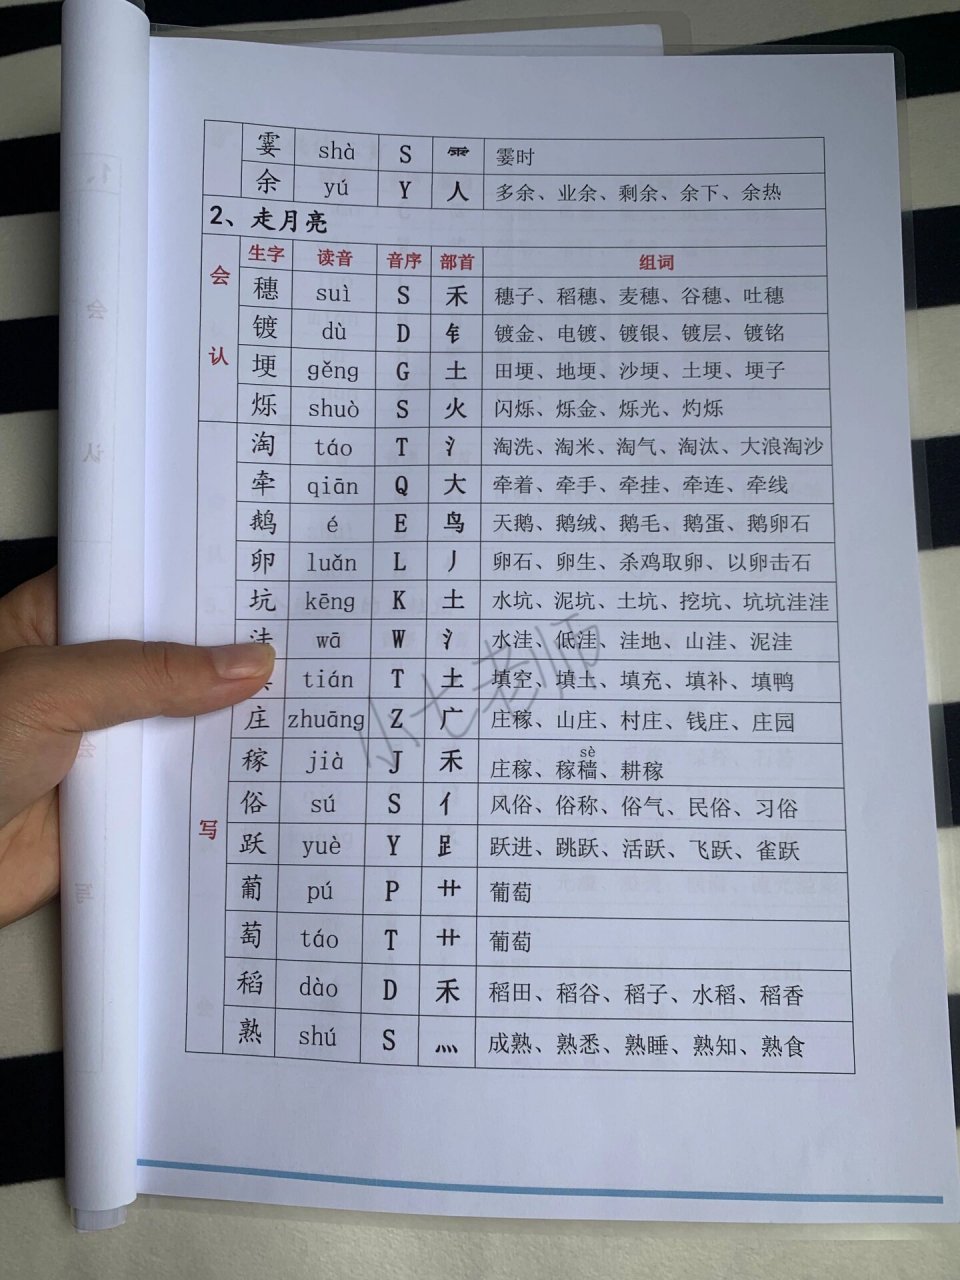 霎 shà S ⻗ 霎时
余 yú Y 人 多余、业余、剩余、余下、余热
2、走月亮
会认
生字 读音 音序 部首 组词
穗 suì S 禾 穗子、稻穗、麦穗、谷穗、吐穗
镀 dù D 钅 镀金、电镀、镀银、镀层、镀铬
埂 gěng G 土 田埂、地埂、沙埂、土埂、埂子
烁 shuò S 火 闪烁、烁金、烁光、灼烁
写
淘 táo T 氵 淘洗、淘米、淘气、淘汰、大浪淘沙
牵 qiān Q 大 牵着、牵手、牵挂、牵连、牵线
鹅 é E 鸟 天鹅、鹅绒、鹅毛、鹅蛋、鹅卵石
卵 luǎn L 丿 卵石、卵生、杀鸡取卵、以卵击石
坑 kēng K 土 水坑、泥坑、土坑、挖坑、坑坑洼洼
wā W 氵 水洼、低洼、洼地、山洼、泥洼
tián T 土 填空、填土、填充、填补、填鸭
庄 zhuāng Z 广 庄稼、山庄、村庄、钱庄、庄园
sè
稼 jià J 禾 庄稼、稼穑、耕稼
俗 sú S 亻 风俗、俗称、俗气、民俗、习俗
跃 yuè Y 𧾷 跃进、跳跃、活跃、飞跃、雀跃
葡 pú P 艹 葡萄
萄 táo T 艹 葡萄
稻 dào D 禾 稻田、稻谷、稻子、水稻、稻香
熟 shú S 灬 成熟、熟悉、熟睡、熟知、熟食
小七老师